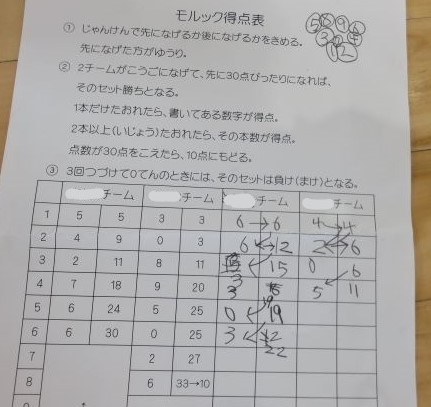 モルック得点表
① じゃんけんで先になげるか後になげるかをきめる。
先になげた方がゆうり。
② 2チームがこうごになげて、先に30点ぴったりになれば、
そのセット勝ちとなる。
1本だけたおれたら、書いてある数字が得点。
2本以上(いじょう)たおれたら、その本数が得点。
点数が30点をこえたら、10点にもどる。
③ 3回つづけて0てんのときには、そのセットは負け(まけ)となる。
チーム チーム チーム チーム
1 5 5 3 3 6→6 4→4
2 4 9 0 3 6 12 2 6
3 2 11 8 11 3 15 0 6
4 7 18 9 20 3 5 11
5 6 24 5 25 0 19
6 6 30 0 25 3 22
7 2 27
8 6 33→10